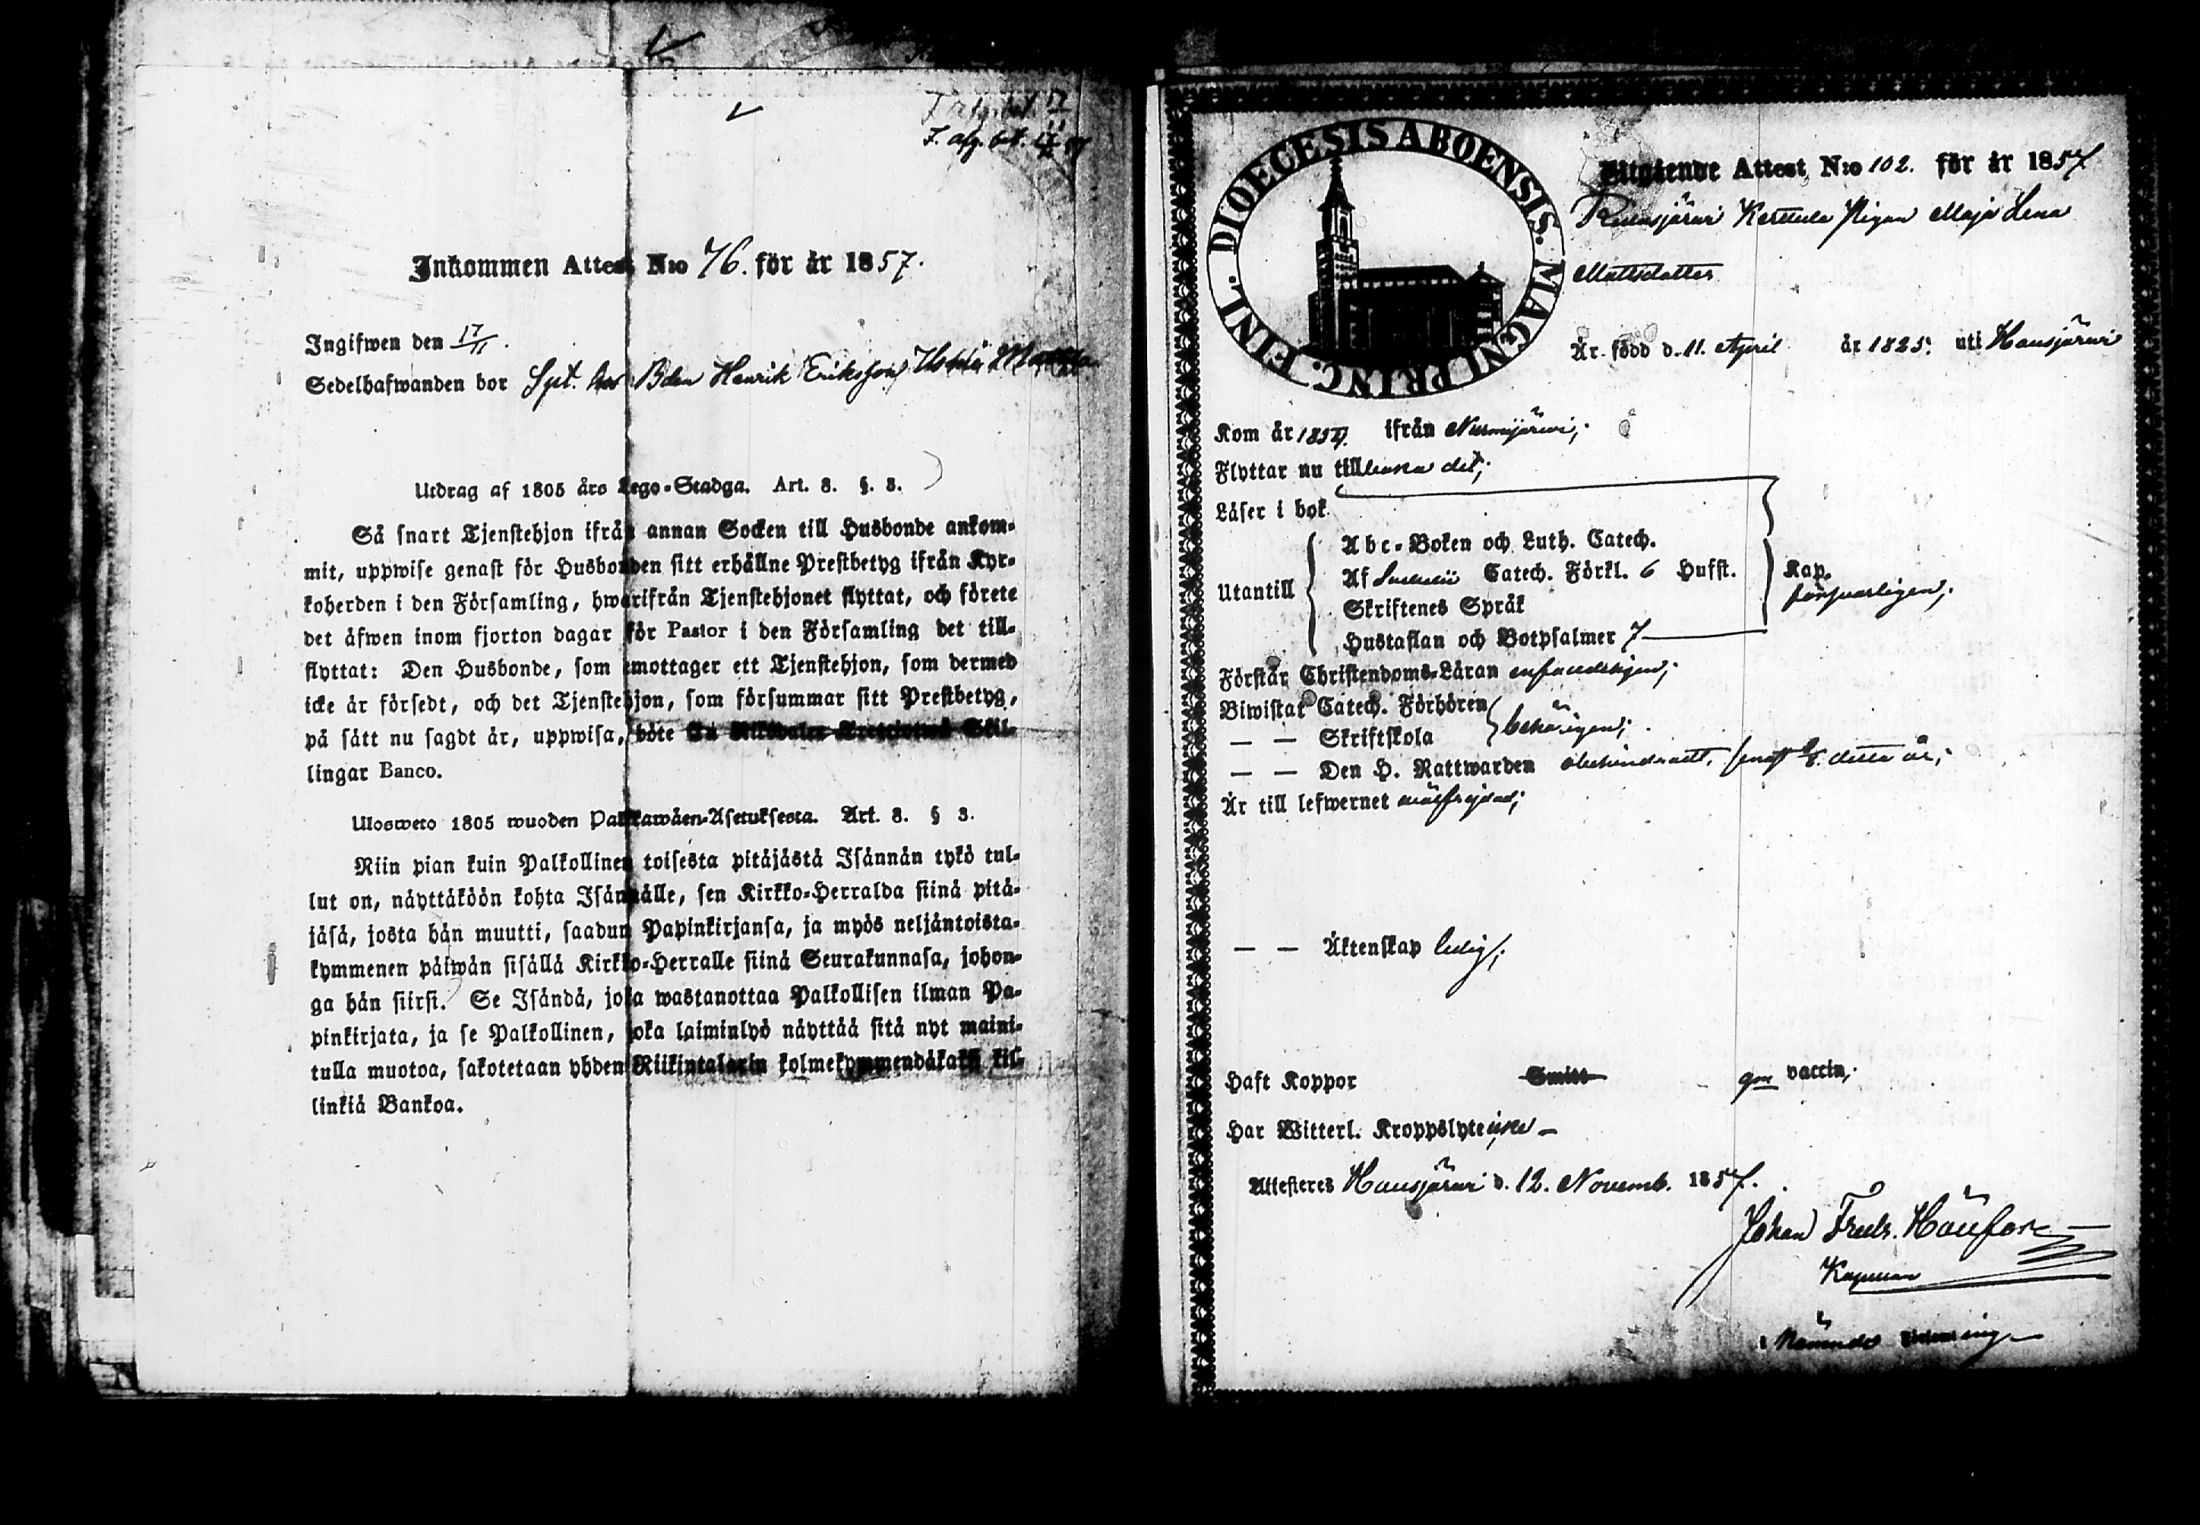 F. afg. bet. 17/11 57
Inkommen Attest N:o 76. för år 1857.
Ingifwen den 17/11.
Sedelhafwanden bor Spt. hos Bden Henrik Eriksson
Utdrag af 1805 års Lego-Stadga. Art. 8. §. 3.
Så snart Tjenstehjon ifrån annan Socken till Husbonde ankom-
mit, uppwise genast för Husbonden sitt erhållne Prestbetyg ifrån Kyr-
koherden i den Församling, hwarifrån Tjenstehjonet flyttat, och förete
det äfwen inom fjorton dagar för Pastor i den Församling det till-
flyttat: Den Husbonde, som emottager ett Tjenstehjon, som dermed
icke är försedt, och det Tjenstehjon, som försummar sitt Prestbetyg,
på sätt nu sagdt är, uppwisa, böte En Riksdaler Trettiotwå Skil-
lingar Banco.
Ulosweto 1805 wuoden Palkkawäen-Asetuksesta. Art. 8. § 3.
Niin pian kuin Palkollinen toisesta pitäjästä Isännän tykö tul-
lut on, näyttäköön kohta Isännälle, sen Kirkko-Herralda siinä pitä-
jäsä, josta hän muutti, saadun Papinkirjansa, ja myös neljäntoista-
kymmenen päiwän sisällä Kirkko-Herralle siinä Seurakunnasa, johon-
ga hän siirsi. Se Isändä, joka wastanottaa Palkollisen ilman Pa-
pinkirjata, ja se Palkollinen, joka laiminlyö näyttää sitä nyt maini-
tulla muotoa, sakotetaan yhden Riikintalarin kolmekymmendäkaksi kil-
linkiä Bankoa.
DIOECESIS ABOENSIS. MAGNI PRINC. FINL.
Utgående Attest N:o 102. för år 1857
Kerttula Pigan Maja Lena
Mattsdotter
Är född d. 11. April år 1825. uti Hausjärvi
Kom år 1854. ifrån Nurmijärvi;
Flyttar nu till
Läser i bok
Abc-Boken och Luth. Catech.
Utantill Af Svebelii Catech. Förkl. 6 Hufst. Kap.
försvarligen;
Skriftenes Språk
Hustaflan och Botpsalmer 7
Förstår Christendoms-Läran enfaldeligen;
Biwistat Catech. Förhören behörigen;
— — Skriftskola
— — Den H. Nattwarden obehindradt, senast detta år;
Är till lefwernet wälfrejdad;
— — Äktenskap ledig;
Haft Koppor Smitt gm vaccin;
Har Witterl. Kroppslyte icke —
Attesteras Hausjärvi d. 12. Novemb. 1857.
Johan Fredr.
Kapellan
i nämnde Församling